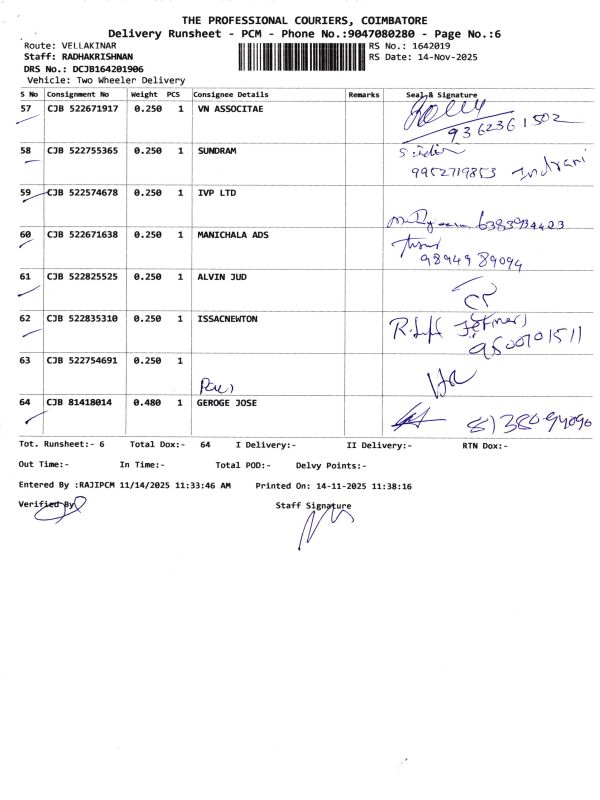 THE PROFESSIONAL COURIERS, COIMBATORE
Delivery Runsheet - PCM - Phone No.:9047080280 - Page No.:6
Route: VELLAKINAR RS No.: 1642019
Staff: RADHAKRISHNAN RS Date: 14-Nov-2025
DRS No.: DCJB164201906
Vehicle: Two Wheeler Delivery
S No Consignment No Weight PCS Consignee Details Remarks Seal & Signature
57 CJB 522671917 0.250 1 VN ASSOCITAE
9362361502
58 CJB 522755365 0.250 1 SUNDRAM
9952719853 Indrani
59 CJB 522574678 0.250 1 IVP LTD
6383934423
60 CJB 522671638 0.250 1 MANICHALA ADS
98949 89094
61 CJB 522825525 0.250 1 ALVIN JUD
62 CJB 522835310 0.250 1 ISSACNEWTON
9500701511
63 CJB 522754691 0.250 1
64 CJB 81418014 0.480 1 GEROGE JOSE
Tot. Runsheet:- 6 Total Dox:- 64 I Delivery:- II Delivery:- RTN Dox:-
Out Time:- In Time:- Total POD:- Delvy Points:-
Entered By :RAJIPCM 11/14/2025 11:33:46 AM Printed On: 14-11-2025 11:38:16
Verified By Staff Signature